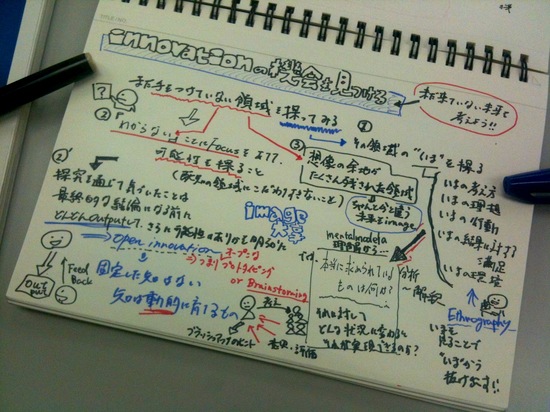 innovationの機会を見つける
まだ来ていない未来を
考えよう!!
まだ手をつけていない領域を探ってみる
?
②「わからない」ことにFocusをあてて
可能性を探ること
(既知の領域にこだわりすぎないこと)
①
その領域の"いま"を探る
いまの考え方
いまの理想
いまの行動
いまの結果に対する
満足
いまの環境
③
想像の余地が
たくさん残された領域
ちゃんと今と違う
未来をimage
②'
探究を通じて
最終的な結論になる前に
どんどんoutputして、さらに可能性のありかを明らかに
→ open innovation
オープンな
⇒つまりプロトタイピング
or Brainstorming
image
共業
固定した知ではない
知は動的に育てるもの
Feed
Back
OUT
put
ブラッシュアップのヒント
意見・評価
mentalmodelの
理解から…
では、
本当に求められている
ものは何か?
分析
〜解釈
それに対して
どんな状況になれば
それが実現できるのか?
Ethnography
いまを
見ることで
"いま"から
抜け出す!!